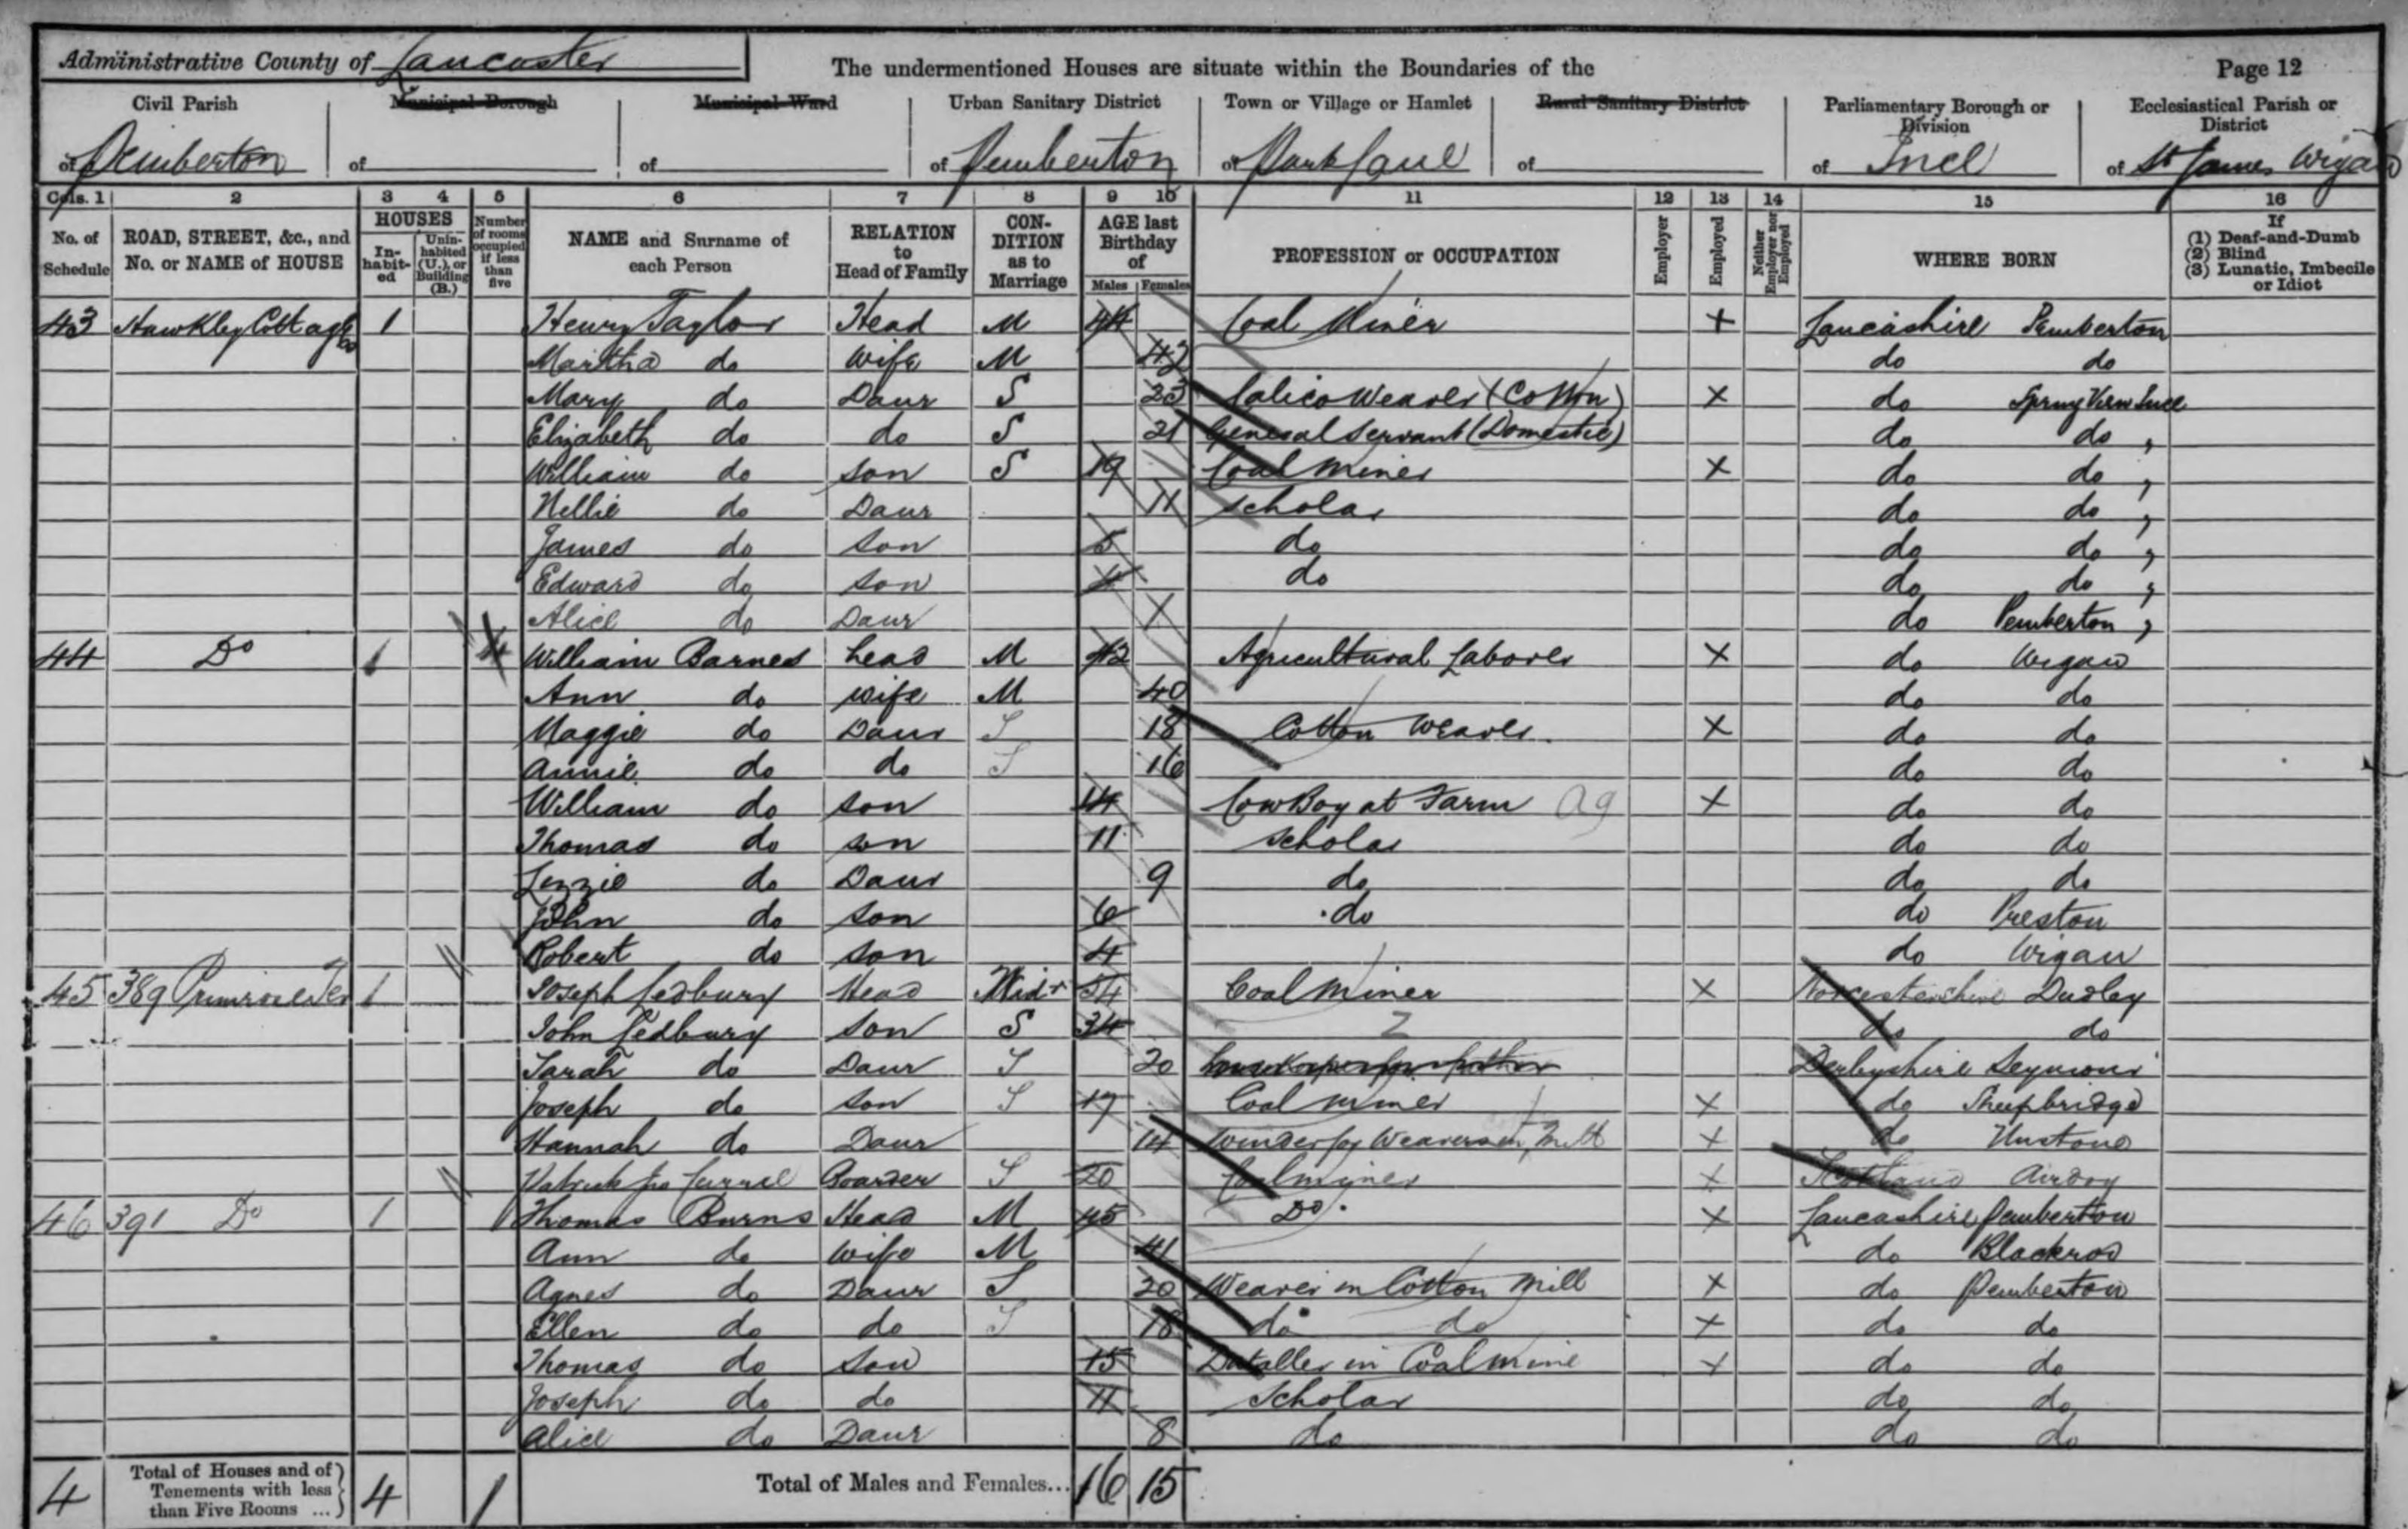 Administrative County of Lancaster The undermentioned Houses are situate within the Boundaries of the Page 12
Civil Parish Municipal Borough Municipal Ward Urban Sanitary District Town or Village or Hamlet Rural Sanitary District Parliamentary Borough or Division Ecclesiastical Parish or District
of Pemberton of of of Pemberton of Park Lane of of Ince of St James Wigan
Cols. 1 2 3 4 5 6 7 8 9 10 11 12 13 14 15 16
No. of Schedule ROAD, STREET, &c., and No. or NAME of HOUSE HOUSES In-habit-ed Unin-habited (U.), or Building (B.) Number of rooms occupied if less than five NAME and Surname of each Person RELATION to Head of Family CON-DITION as to Marriage AGE last Birthday of Males Females PROFESSION or OCCUPATION Employer Employed Neither Employer nor Employed WHERE BORN If (1) Deaf-and-Dumb (2) Blind (3) Lunatic, Imbecile or Idiot
43 Hawkley Cottages 1 Henry Taylor Head M 44 Coal Miner X Lancashire Pemberton
Martha do Wife M 42 do do
Mary do Daur S 23 Calico Weaver (Cotton) X do Spring View Ince
Elizabeth do do S 21 General Servant (Domestic) do do "
William do son S 19 Coal Miner X do do "
Nellie do Daur 11 Scholar do do "
James do son 5 do do do "
Edward do son 4 do do do "
Alice do Daur 1 do Pemberton "
44 Do 1 4 William Barnes head M 42 Agricultural Laborer X do Wigan
Ann do wife M 40 do do
Maggie do Daur S 18 Cotton Weaver X do do
Annie do do S 16 do do
William do son 14 Cow Boy at Farm Ag X do do
Thomas do son 11 Scholar do do
Lizzie do Daur 9 do do do
John do son 6 do do Preston
Robert do son 4 do Wigan
45 389 Primrose Ter 1 Joseph Ledbury Head Widr 54 Coal Miner X Worcestershire Dudley
John Ledbury son S 34 do do
Sarah do Daur S 20 Derbyshire Seymour
Joseph do son S 17 Coal Miner X do Sheepbridge
Hannah do Daur 14 Winder for Weavers in Mill X do Unstone
Patrick Boarder S 20 Coalminer X Scotland
46 391 Do 1 Thomas Burns Head M 45 Do X Lancashire Pemberton
Ann do Wife M 41 do Blackrod
Agnes do Daur S 20 Weaver in Cotton Mill X do Pemberton
Ellen do do S 18 do do X do do
Thomas do Son 15 Dataller in Coal mine X do do
Joseph do do 11 Scholar do do
Alice do Daur 8 do do do
4 Total of Houses and of Tenements with less than Five Rooms ... 4 1 Total of Males and Females... 16 15